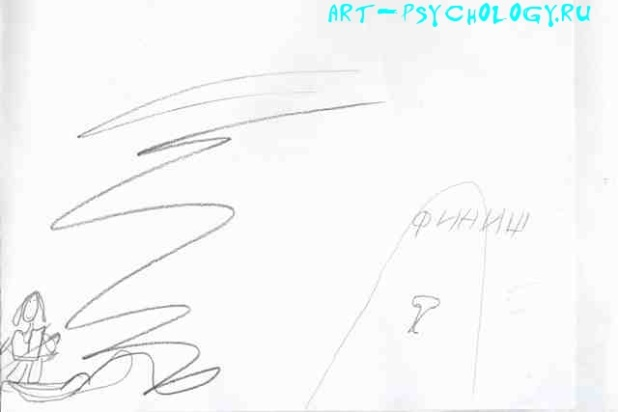 ART-PSYCHOLOGY.RU
ФИНИШ